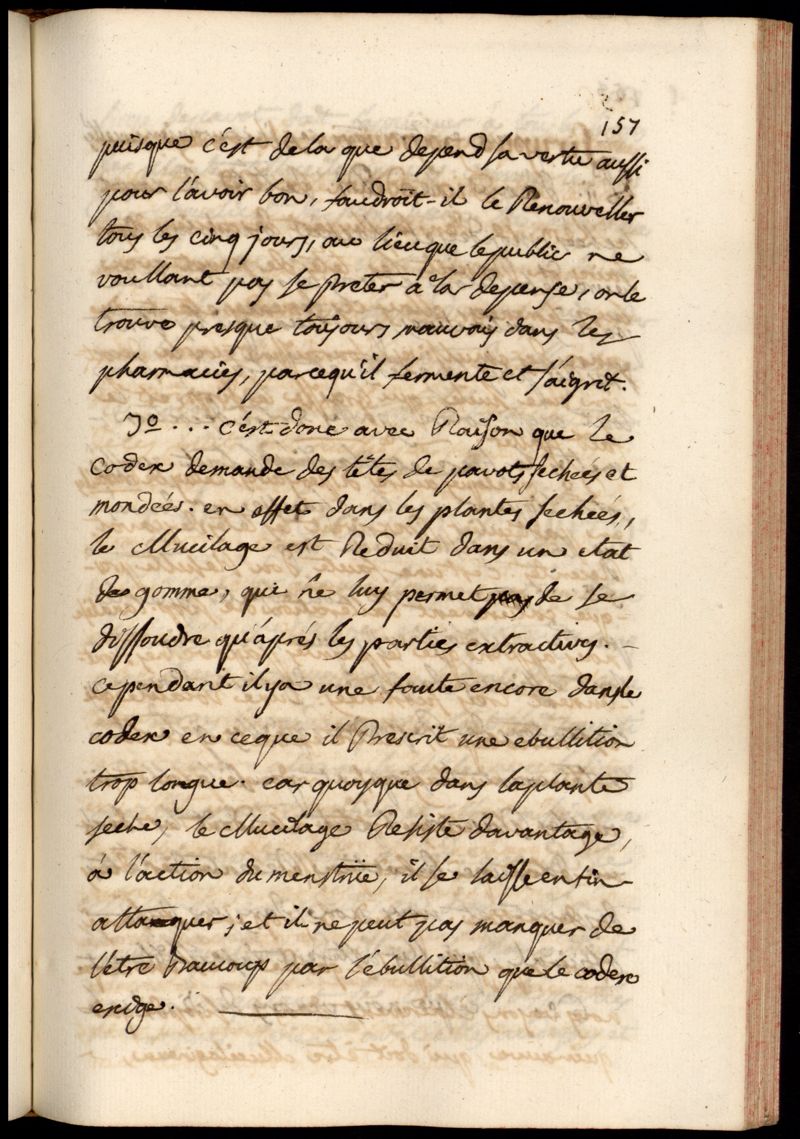 157
puisque c'est de la que depend sa vertu aussi
pour l'avoir bon, faudroit-il le Renouveller
tous les cinq jours, au lieu que le public ne
voullant pas se preter a la depense, on le
trouve presque toujours mauvais dans les
pharmacies, parcequ'il fermente et s'aigrit.
3º... c'est donc avec Raison que le
codex demande des têtes de pavots sechées et
mondées. en effet dans les plantes sechées,
le Mucilage est Reduit dans un etat
de gomme, qui ne luy permet de se
dissoudre qu'aprés les parties extractives.
cependant il y a une faute encore dans le
codex en ceque il Prescrit une ebullition
trop longue. car quoyque dans la plante
seche, le Mucilage Resiste davantage,
á l'action du menstrüe, il se laisse enfin
attaquer; et il ne peut pas manquer de
l'être Baucoup par l'ébullition que le codex
exige.